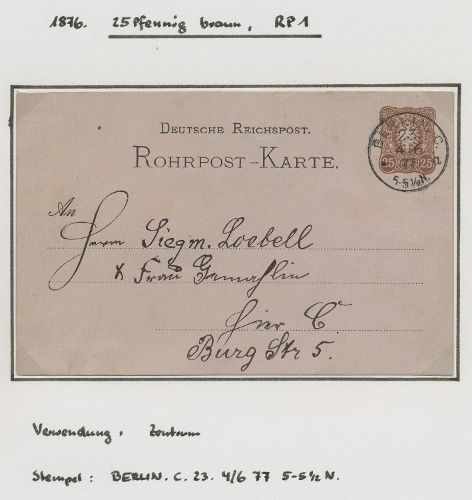 1876. 25 Pfennig braun, RP 1
DEUTSCHE REICHSPOST.
ROHRPOST-KARTE.
BERLIN. C.
23
4/6
77
5-5½N.
25 25
An
Herrn Siegm. Loebell
& Frau Gemahlin
hier C.
Burg Str 5.
Verwendung: Zentrum
Stempel: BERLIN. C. 23. 4/6 77 5-5½ N.